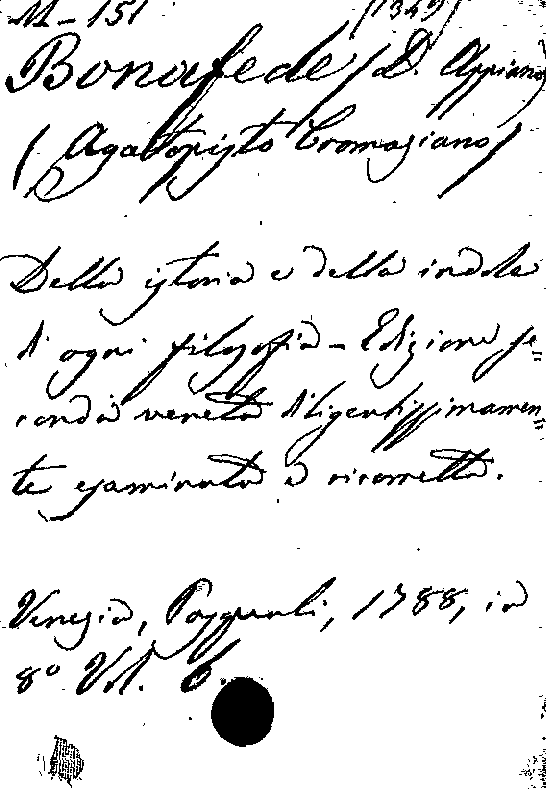 M-151 (1349)
Bonafede (D. Appiano
(Agatopisto Cromaziano)
Della istoria e della indole
di ogni filosofia - Edizione se=
conda veneta diligentissimamen=
te esaminata e ricorretta.
Venezia, Pasquali, 1788, in
8º Vol. 6.